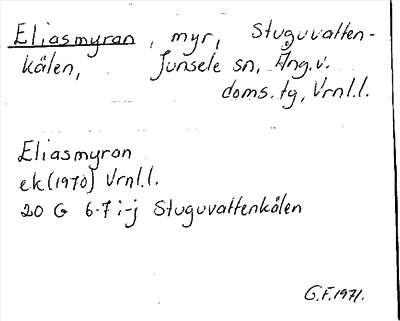 Eliasmyran, myr, Stuguvatten-
kälen, Junsele sn, Ång.v.
doms.tg, Vrnl.l.
Eliasmyran
ek (1970) Vrnl.l.
20 G 6-7 i-j Stuguvattenkälen
G.F. 1971.